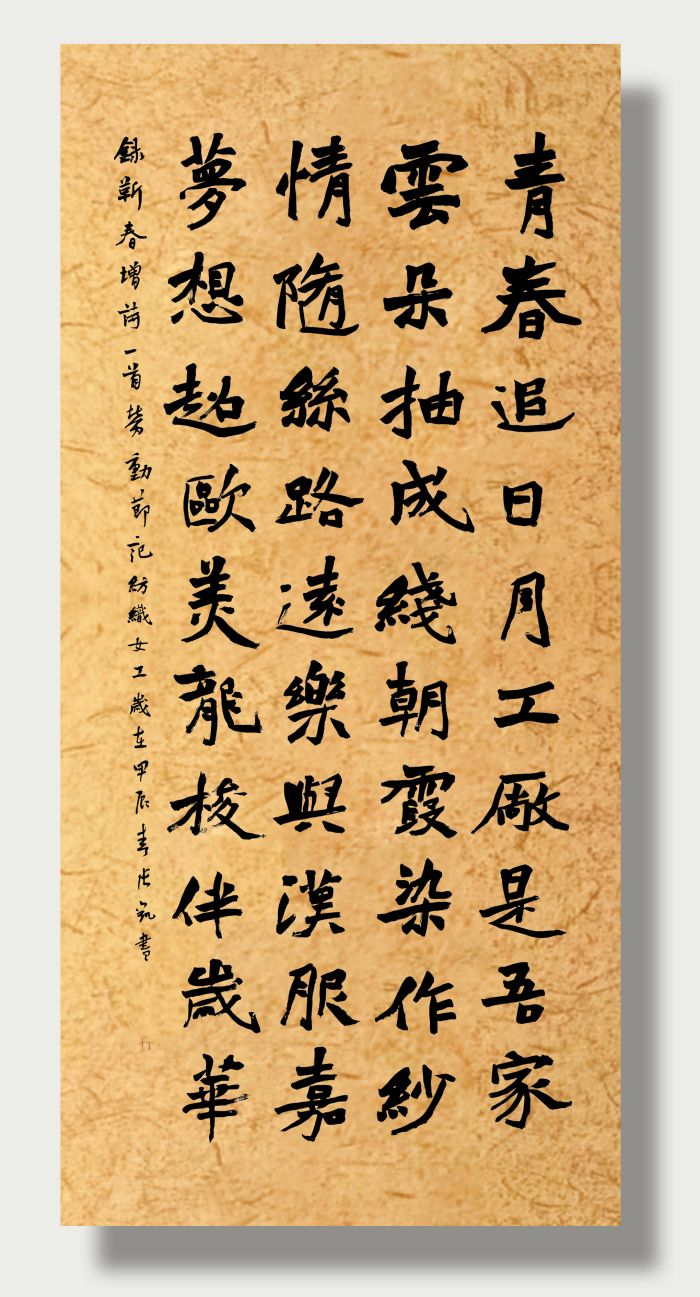 青春追日月工廠是吾家
雲朵抽成綫朝霞染作紗
情隨絲路遠樂與漢服嘉
夢想超歐美龍梭伴歲華
錄靳春增詩一首勞動節記紡織女工歲在甲辰春張 書